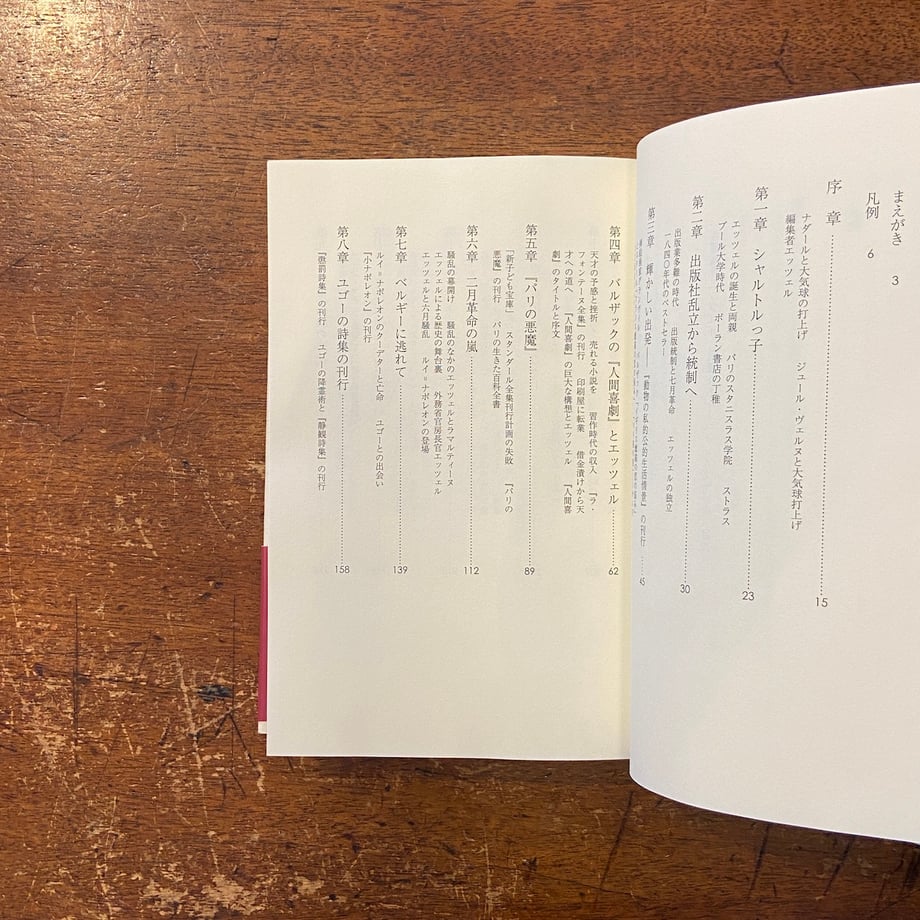 まえがき 3
凡例 6
序 章 15
ナダールと大気球の打上げ ジュール・ヴェルヌと大気球打上げ
編集者エッツェル
第一章 シャルトルっ子 23
エッツェルの誕生と両親 パリのスタニスラス学院 ストラス
ブール大学時代 ポーラン書店の丁稚
第二章 出版社乱立から統制へ 30
出版業多難の時代 出版統制と七月革命 エッツェルの独立
一八四〇年代のベストセラー
第三章 輝かしい出発――『動物の私的公的生活情景』の刊行 45
第四章 バルザックの『人間喜劇』とエッツェル 62
天才の予感と挫折 売れる小説を 習作時代の収入 『ラ・
フォンテーヌ全集』の刊行 印刷屋に転業 借金漬けから天
才への道へ 『人間喜劇』の巨大な構想とエッツェル 『人間喜
劇』のタイトルと序文
第五章 『パリの悪魔』 89
「新子ども宝庫」 スタンダール全集刊行計画の失敗 『パリの
悪魔』の刊行 パリの生きた百科全書
第六章 二月革命の嵐 112
騒乱の幕開け 騒乱のなかのエッツェルとラマルティーヌ
エッツェルによる歴史の舞台裏 外務省官房長官エッツェル
エッツェルと六月騒乱 ルイ=ナポレオンの登場
第七章 ベルギーに逃れて 139
ルイ=ナポレオンのクーデターと亡命 ユゴーとの出会い
『小ナポレオン』の刊行
第八章 ユゴーの詩集の刊行 158
『懲罰詩集』の刊行 ユゴーの降霊術と『静観詩集』の刊行